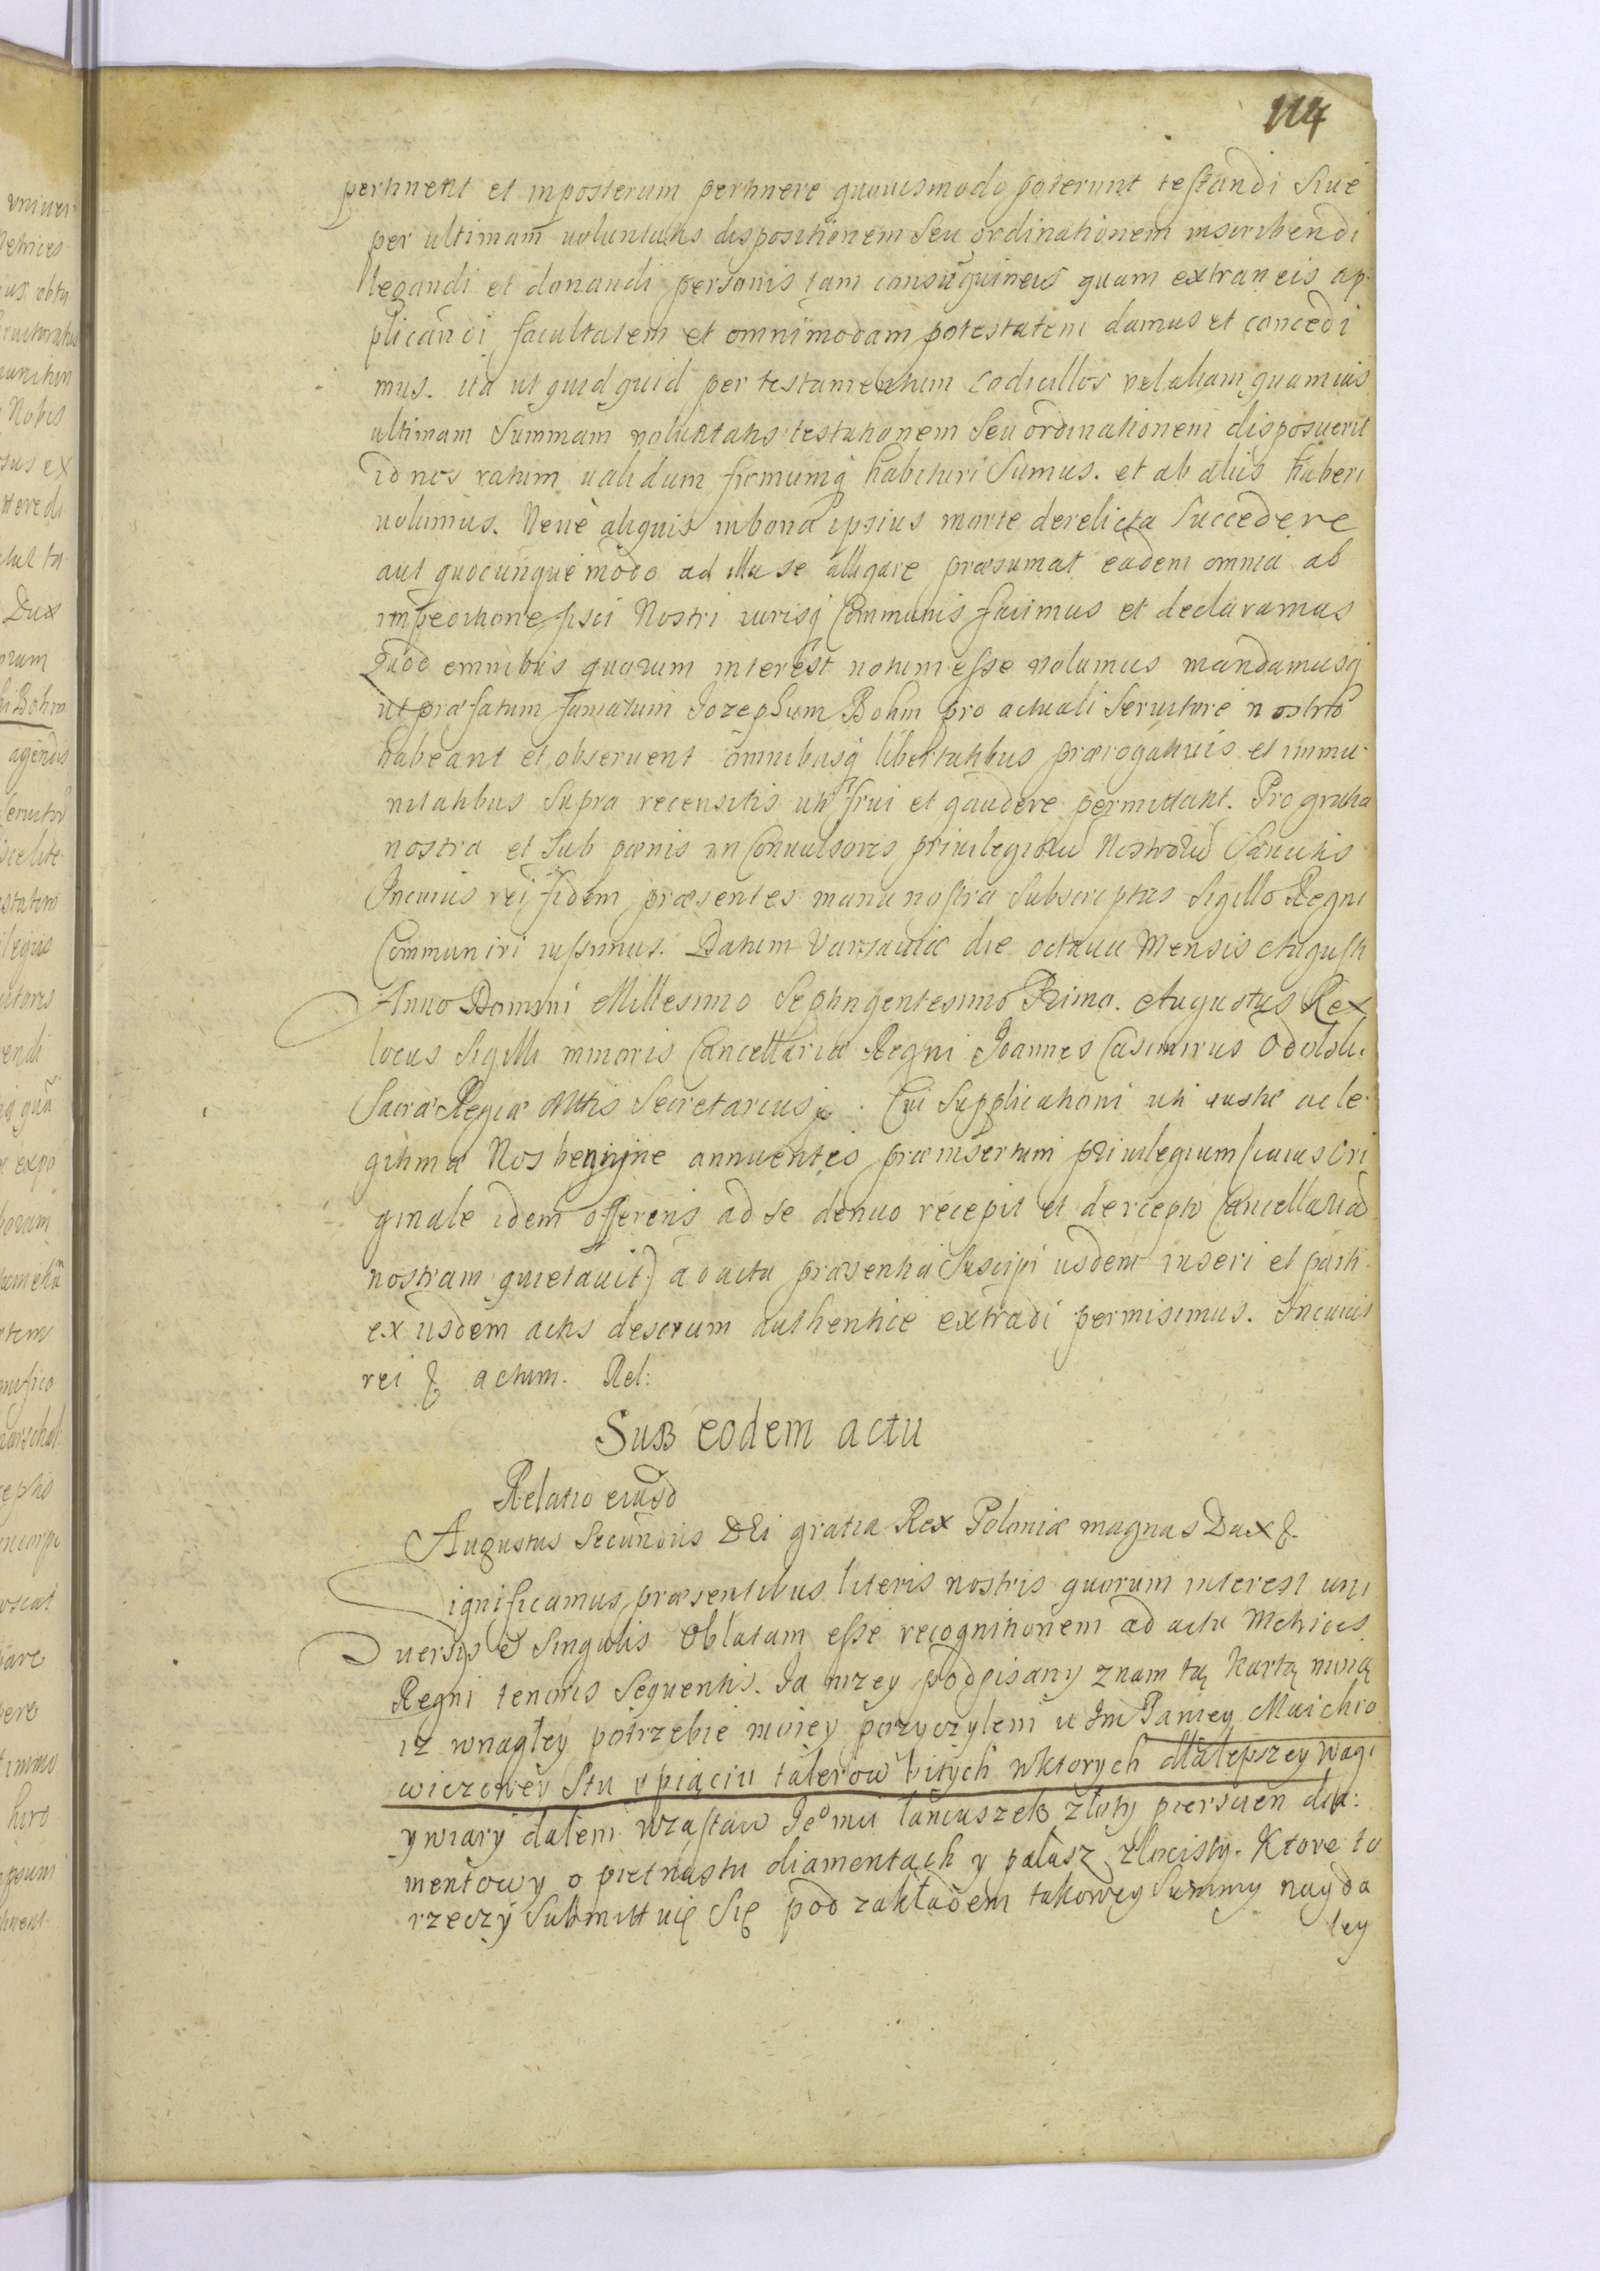 114
pertinent et inposterum pertinere quouismodo poterunt testandi siue
per ultimam uoluntatis dispositionem seu ordinationem inscribendi
legandi et donandi personis tam consanguineis quam extraneis ap:
plicandi facultatem et omnimodam potestatem damus et concedi
mus. ita ut quidquid per testamentum codicillos vel aliam quamuis
ultimam summam voluntatis testationem seu ordinationem disposuerit
id nos ratum ualidum firmumq habituri sumus. et ab aliis haberi
uolumus. Neue aliquis in bona ipsius morte derelicta succedere
aut quocunque modo ad illa se alligare præsumat eadem omnia ab
impeditione fisci Nostri iurisq Communis facimus et declaramus
Quod omnibus quorum interest notum esse volumus mandamusq
ut præfatum famatum Jozephum Bohm pro actuali seruitore nostro
habeant et obseruent omnibusq libertatibus prærogatiuis et immu
nitatibus supra recensitis uti frui et gaudere permittant. Pro gratia
nostra et sub pænis in Conuulsores priuilegioru Nostroru Sancitis
In cuius rei fidem præsentes manu nostra subscriptas sigillo Regni
Communiri iussimus. Datum Varsauiæ die octaua Mensis Augusti
Anno Domini Millesimo Septingentesimo Primo. Augustus Rex
locus sigilli minoris Cancellariæ Regni Joannes Casimirus
Sacræ Regiæ Mttis Secretarius. Cui supplicationi uti iustæ ac le
gitimæ Nos benigne annuentes præinsertum priuilegium (cuius ori
ginale idem offerens ad se denuo recepit et de recepto Cancellariã
nostram quietauit) ad acta præsentia suscipi iisdem inseri et parti
ex iisdem actis descrum authentice extradi permisimus. In cuius
rei & actum. Rel:
Sub eodem actu
Relatio eiusd
Augustus Secundus DEi gratia Rex Poloniæ magnus Dux &.
Significamus præsentibus literis nostris quorum interest uni
uersis & singulis Oblatam esse recognitionem ad acta Metrices
Regni tenoris sequentis. Ja nizey podpisany znam tą kartą moią
iz wnagłey potrzebie moiey pozyczylem u Jm Paniey Maichro
wiczowey Stu y piąciu talerow bitych wktorych dla lepszey wagi
y wiary dałem wzastaw Jeomu łancuszek złoty piersien dia:
mentowy o pietnastu diamentach y pałasz złocisty. Ktore to
rzeczy submittuię się pod zakładem takowey summy nayda
ley